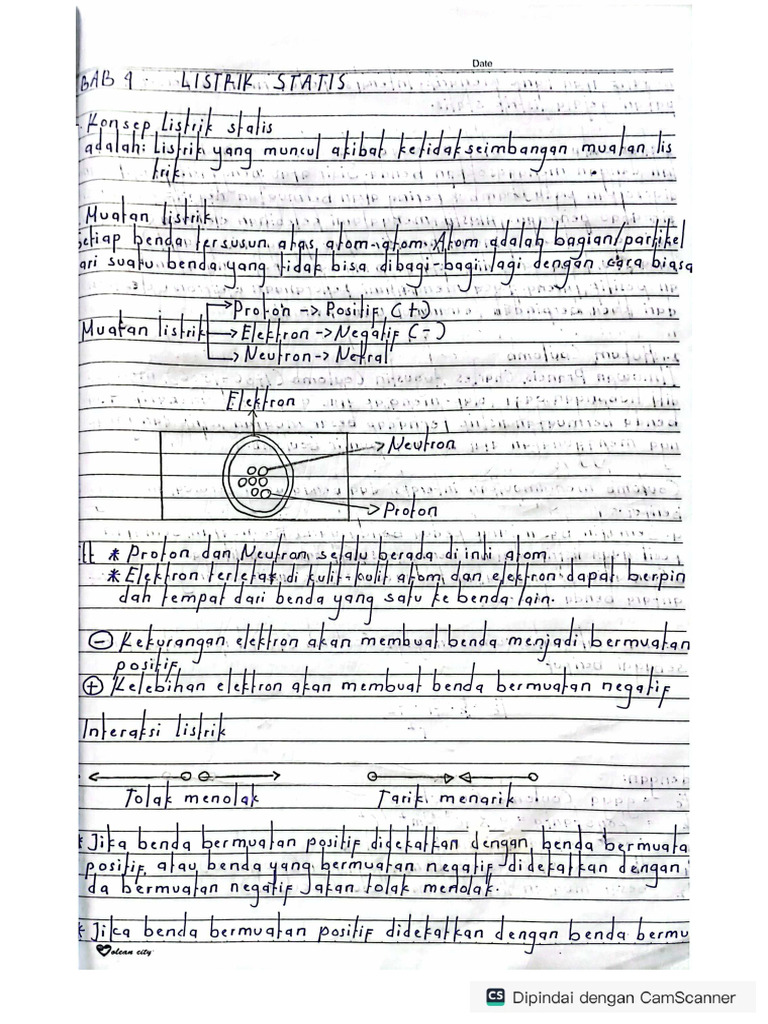 Date
BAB 4 LISTRIK STATIS
Konsep Listrik statis
adalah: Listrik yang muncul akibat ketidakseimbangan muatan lis
trik.
Muatan listrik
Setiap benda tersusun atas atom-atom. Atom adalah bagian/partikel
ari suatu benda yang tidak bisa dibagi-bagi lagi dengan cara biasa
Proton -> Positif (+)
Muatan listrik Elektron -> Negatif (-)
Neutron -> Netral
Elektron
Neutron
Proton
* Proton dan Neutron selalu berada di inti atom
* Elektron terletak di kulit-kulit atom, dan elektron dapat berpin
dah tempat dari benda yang satu ke benda lain.
(-) Kekurangan elektron akan membuat benda menjadi bermuatan
positif.
(+) Kelebihan elektron akan membuat benda bermuatan negatif
Interaksi listrik
Tolak menolak Tarik menarik
* Jika benda bermuatan positif didekatkan dengan benda bermuata
positif, atau benda yang bermuatan negatif didekatkan dengan
da bermuatan negatif akan tolak menolak.
* Jika benda bermuatan positif didekatkan dengan benda bermu
olean city
CS Dipindai dengan CamScanner